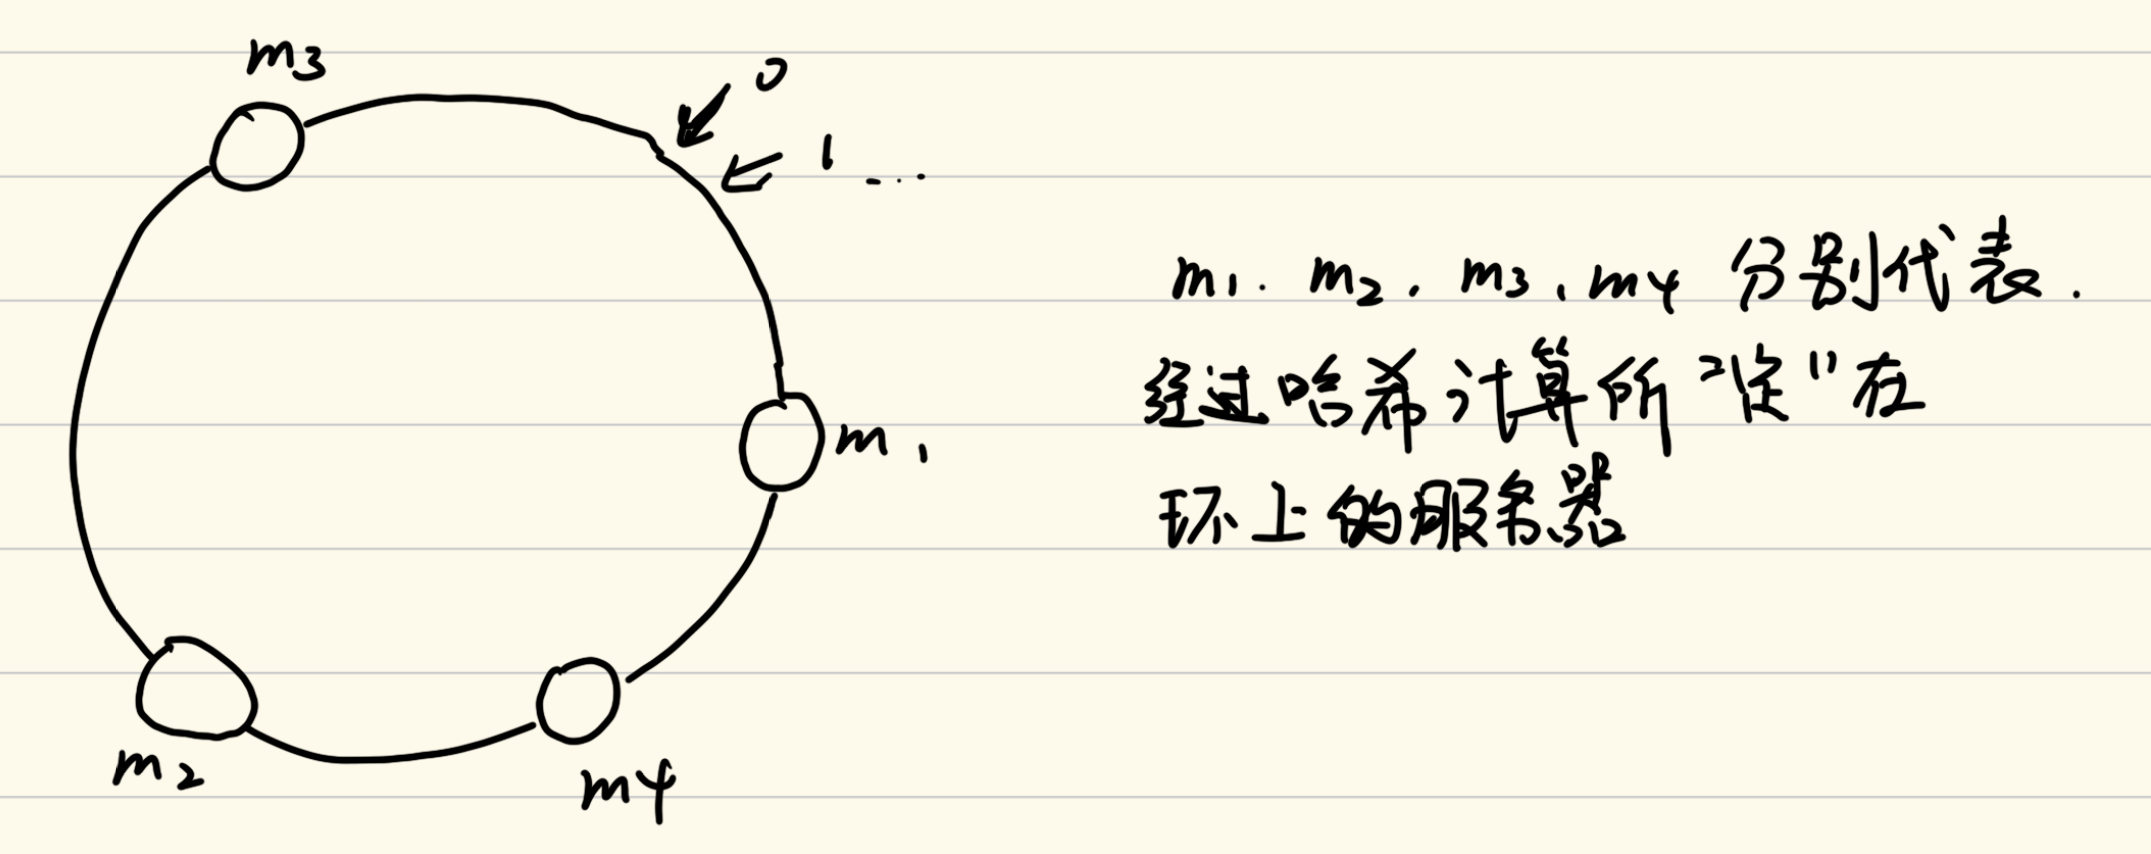 m3
0
1 ...
m1
m2
m4
m1. m2. m3、m4 分别代表.
经过哈希计算所"定"在
环上的服务器